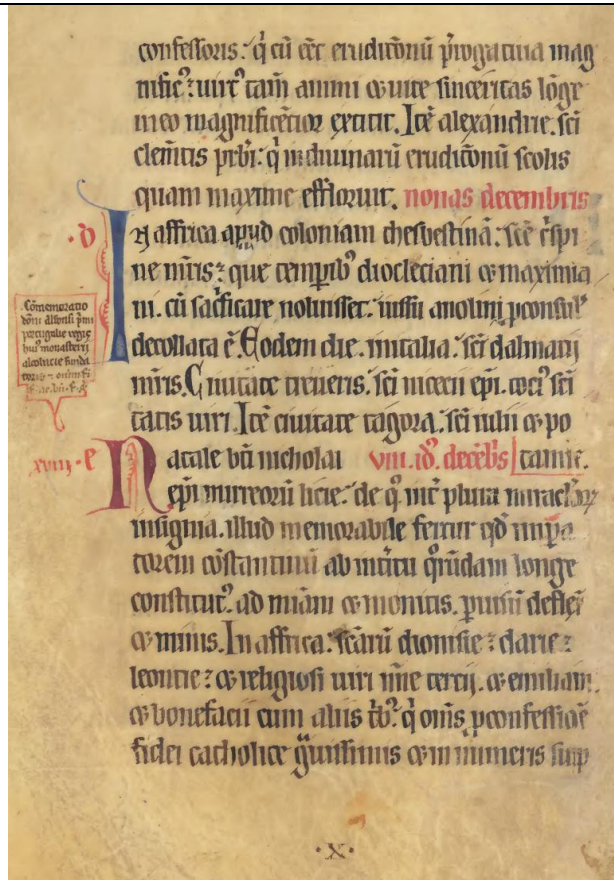 confessoris. q̃ cũ eẽt eruditõnũ p̃rogatiua mag
nific⁹: uirt⁹ tam̃ animi ⁊ uite sinceritas lõge
in eo magnificẽtior extitit. Itẽ alexandrie. sc̃i
clemẽtis prb̃i: q̃ in diuinarũ eruditõnũ scolis
quam maxime effloruit. nonas decembris
·D In affrica apud coloniam thesbestinã. sc̃e c̃spi
ne mr̃is: que temp̃ib⁹ diocleciani ⁊ maximia
ni. cũ sac̃ficare noluisset. iussu anolini p̃consul'
decollata ẽ. Eodem die. in italia. sc̃i dalmatij
mr̃is. Ciuitate treueris. sc̃i nicecii ep̃i. toci⁹ sc̃i
tatis uiri. Itẽ ciuitate tagora. sc̃i iulii ⁊ po
Cõmemoratio
dõni alfonsi p̃mi
portugalie regis
hui⁹ monasterij
alcobacie funda
toris
xviij·E Natale bt̃i nicholai viii. id̃. decẽb̃s tamie.
ep̃i mirreorũ licie. de q̃ int̃ plura miraclõꝝ
insignia. illud memorabile fertur qđ imp̃a
torem cõstantinũ ab int̃itu q̃rũdam longe
constitut⁹. ad mĩam ⁊ monitis. p̃ uisũ deflex̃
⁊ minis. In affrica. sc̃arũ dionisie: datiue:
leoncie: ⁊ religiosi uiri nõie tercij. ⁊ emiliani.
⁊ bonefacii cum aliis tib⁹: q̃ om̃s p̃ confessiõe
fidei catholice g̃uissimis ⁊ innumeris sup
·X·